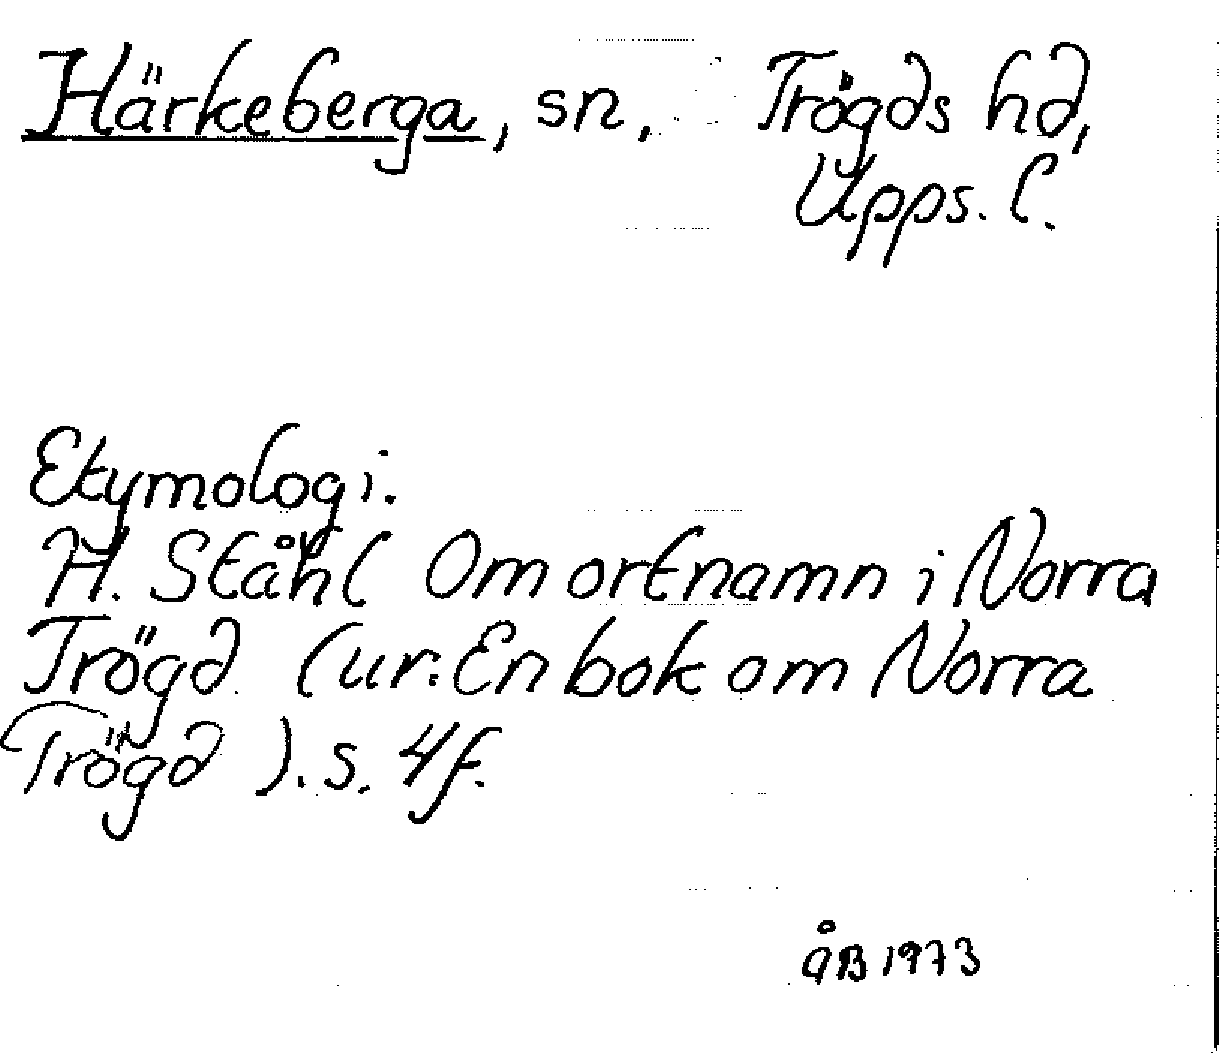 Härkeberga, sn, Trögds hd,
Upps. l.
Etymologi.
H. Ståhl Om ortnamn i Norra
Trögd (ur: En bok om Norra
Trögd). s. 4f.
ÅB 1973